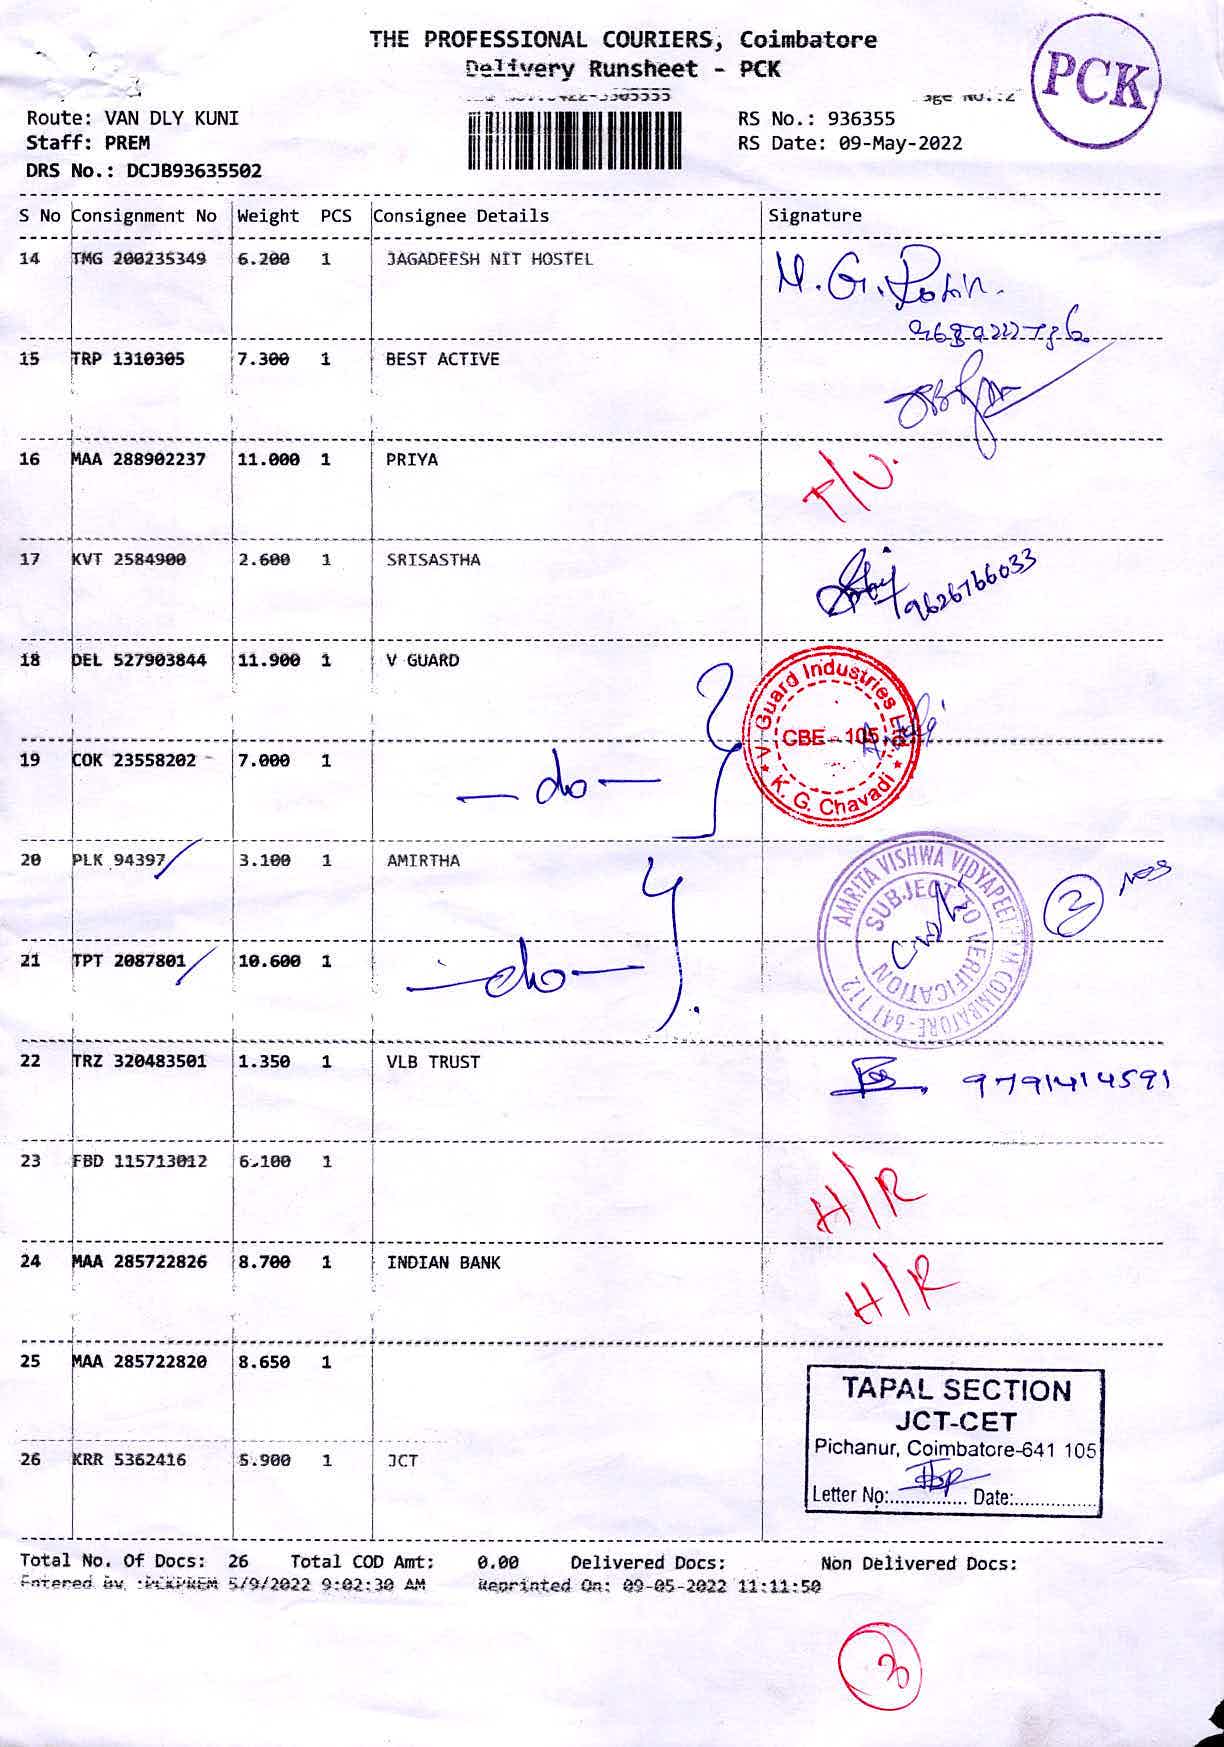 THE PROFESSIONAL COURIERS, Coimbatore
Delivery Runsheet - PCK
PCK
Route: VAN DLY KUNI
RS No.: 936355
Staff: PREM
RS Date: 09-May-2022
DRS No.: DCJB93635502
S No Consignment No Weight PCS Consignee Details Signature
14 TMG 200235349 6.200 1 JAGADEESH NIT HOSTEL
15 TRP 1310305 7.300 1 BEST ACTIVE
16 MAA 288902237 11.000 1 PRIYA
17 KVT 2584900 2.600 1 SRISASTHA
9626766033
18 DEL 527903844 11.900 1 V GUARD
V Guard Industries Ltd
CBE - 105
K. G. Chavadi
19 COK 23558202 7.000 1 -do-
20 PLK 94397 3.100 1 AMIRTHA
AMRITA VISHWA VIDYAPEETHAM COIMBATORE-641 112
SUBJECT TO VERIFICATION
2 Nos
21 TPT 2087801 10.600 1 -do-
22 TRZ 320483501 1.350 1 VLB TRUST
9791414591
23 FBD 115713012 6.100 1 H/R
24 MAA 285722826 8.700 1 INDIAN BANK H/R
25 MAA 285722820 8.650 1
TAPAL SECTION
JCT-CET
Pichanur, Coimbatore-641 105
Letter No:............... Date:................
26 KRR 5362416 5.900 1 JCT
Total No. Of Docs: 26 Total COD Amt: 0.00 Delivered Docs: Non Delivered Docs:
Entered By :PCKPREM 5/9/2022 9:02:30 AM Reprinted On: 09-05-2022 11:11:50
3